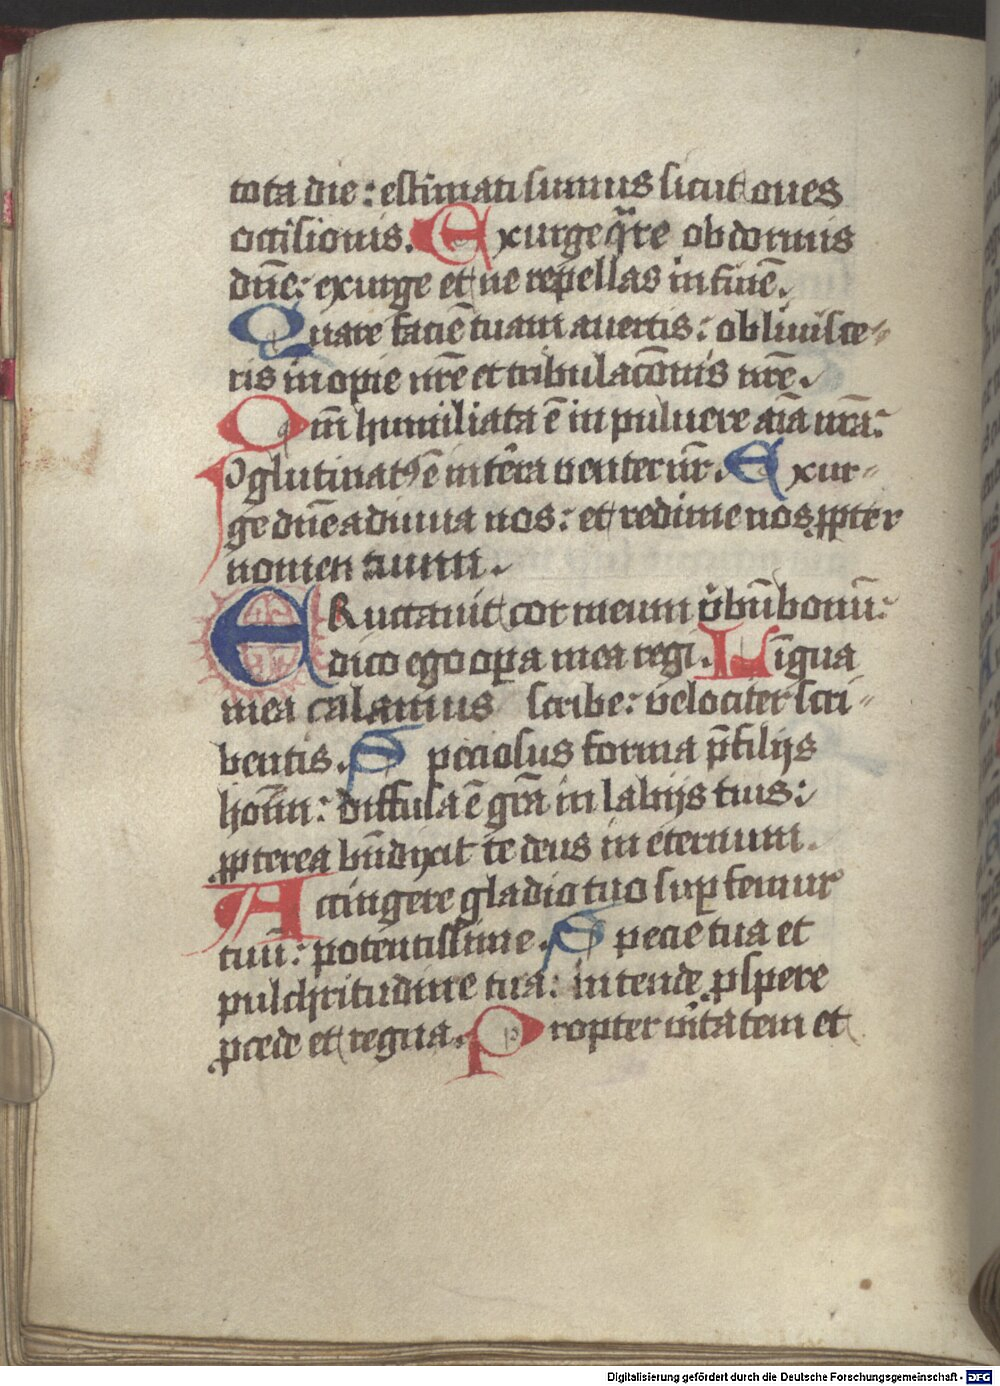 tota die : estimati sumus sicut oues
occisionis. Exurge q̄re obdormis
dn̄e : exurge et ne repellas in finē.
Quare faciē tuam auertis : obliuisce-
ris inopie nr̄e et tribulac̄onis nr̄e.
Qm̄ humiliata ē in puluere aīa nr̄a :
ꝯglutinatꝰ ē in t̄ra venter nr̄. Exur-
ge dn̄e adiuua nos : et redime nos ꝓpter
nomen tuum.
ERuctauit cor meum v̓bū bonū :
dico ego oꝑa mea regi. Lingua
mea calamus scribe : velociter scri-
bentis. Speciosus forma p̄ filijs
hoīm : diffusa ē gr̄a in labijs tuis :
ꝓpterea bn̄dixit te deus in eternum.
Accingere gladio tuo suꝑ femur
tuū : potentissime. Specie tua et
pulchritudine tua : intende ꝓspere
ꝓcede et regna. Propter v̓itatem et
Digitalisierung gefördert durch die Deutsche Forschungsgemeinschaft - DFG